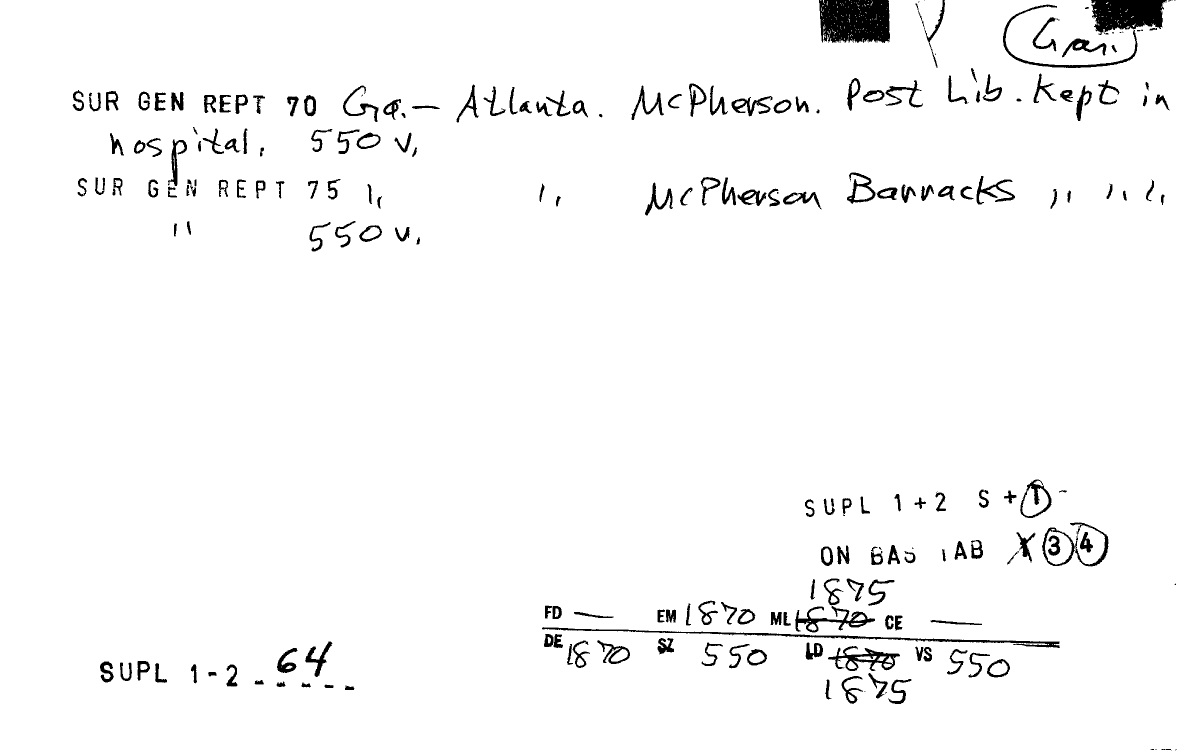 Gar.
SUR GEN REPT 70 Ga.— Atlanta. McPherson. Post Lib. Kept in
hospital. 550 v.
SUR GEN REPT 75 " " McPherson Barracks " " "
" 550 v.
SUPL 1+2 S + T -
ON BAS TAB X 3 4
1875
FD — EM 1870 ML 1870 CE —
DE 1870 SZ 550 LD 1870 VS 550
1875
SUPL 1-2 - 64 - - -